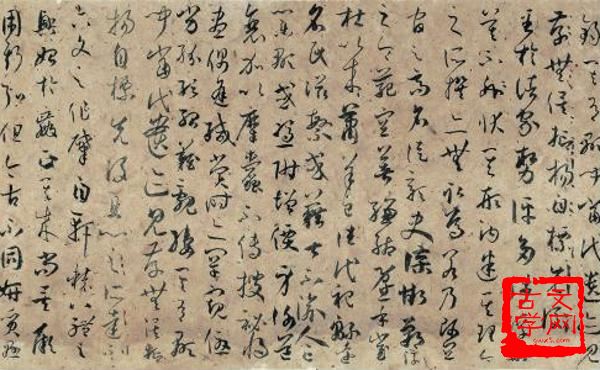 其有顯聞當代遺跡見
存無俟抑揚自標先後
至於諸家勢評多涉浮華
莫不外狀其形內迷其理今
之所撰亦無取焉若乃師宜
官之高名徒彰史牒邯鄲淳
之令範空著縑緗暨乎崔
杜以來蕭羊已往代祀綿遠
名氏滋繁或藉甚不渝人亡
業顯或憑附增價身謝道
衰加以糜蠹不傳搜祕將
盡偶逢緘賞時亦罕窺優
劣紛紜殆難覼縷其有顯
聞當代遺跡見存無俟抑
揚自標先後且
六文之作肇自軒轅八體之
興始於嬴正其來尚矣厥
用斯弘但今古不同妍質懸
古文学网